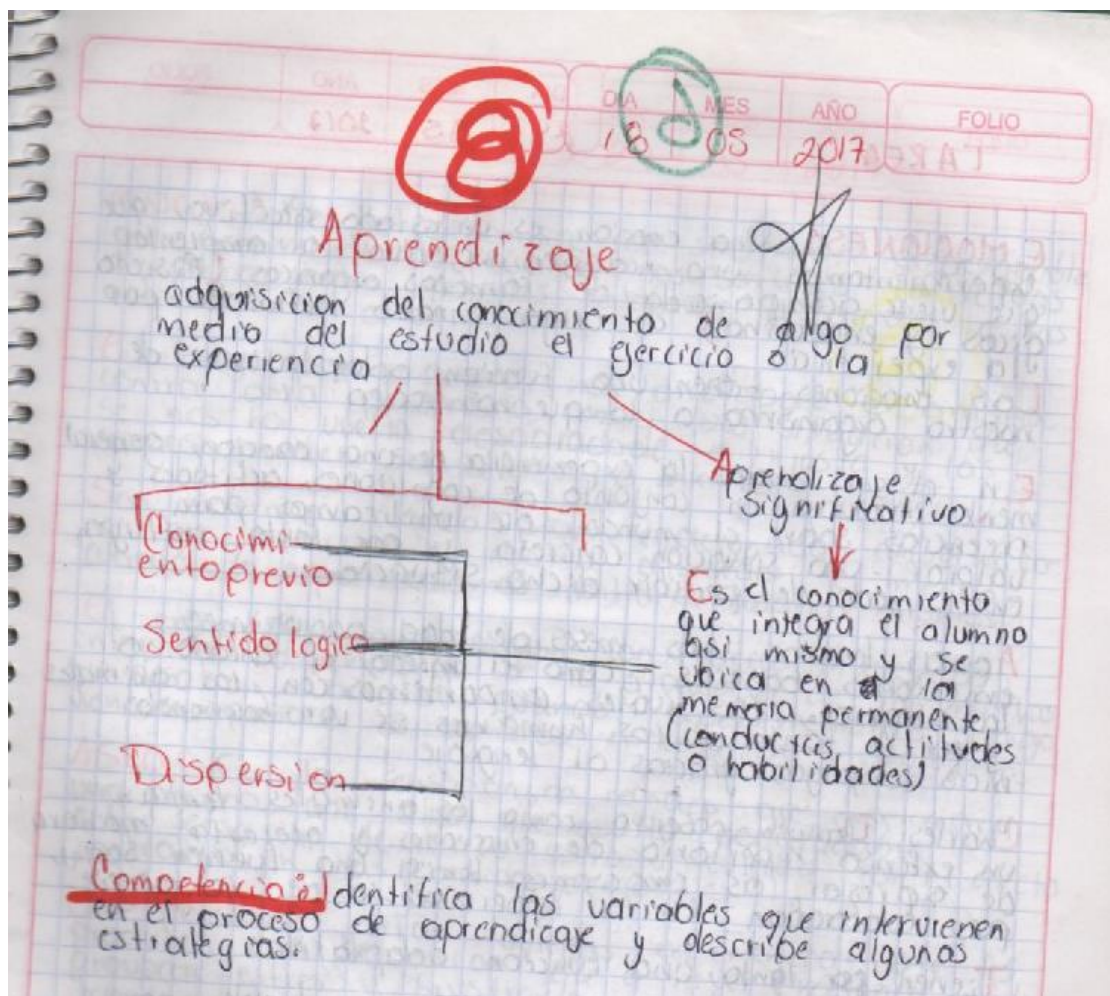 DIA MES AÑO FOLIO
18 05 2017
8
Aprendizaje
adquisicion del conocimiento de algo por
medio del estudio el ejercicio o la
experiencia
Aprendizaje
significativo
Conocimi
ento previo
Sentido logico
Dispersion
Es el conocimiento
que integra el alumno
asi mismo y se
ubica en la
memoria permanente
(conductas, actitudes
o habilidades)
Competencia: Identifica las variables que intervienen
en el proceso de aprendicaje y describe algunas
estrategias.